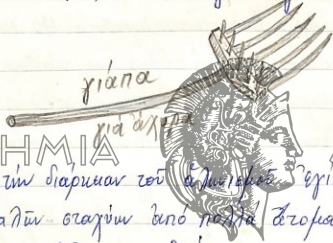 γιάπα
γιά ἄχυρα
ΗΜΙΑ
τήν διάρκειαν τοῦ ἁλωνισμοῦ ἐγί
αλῶν σταχύων ἀπό πολλά ἄτομα